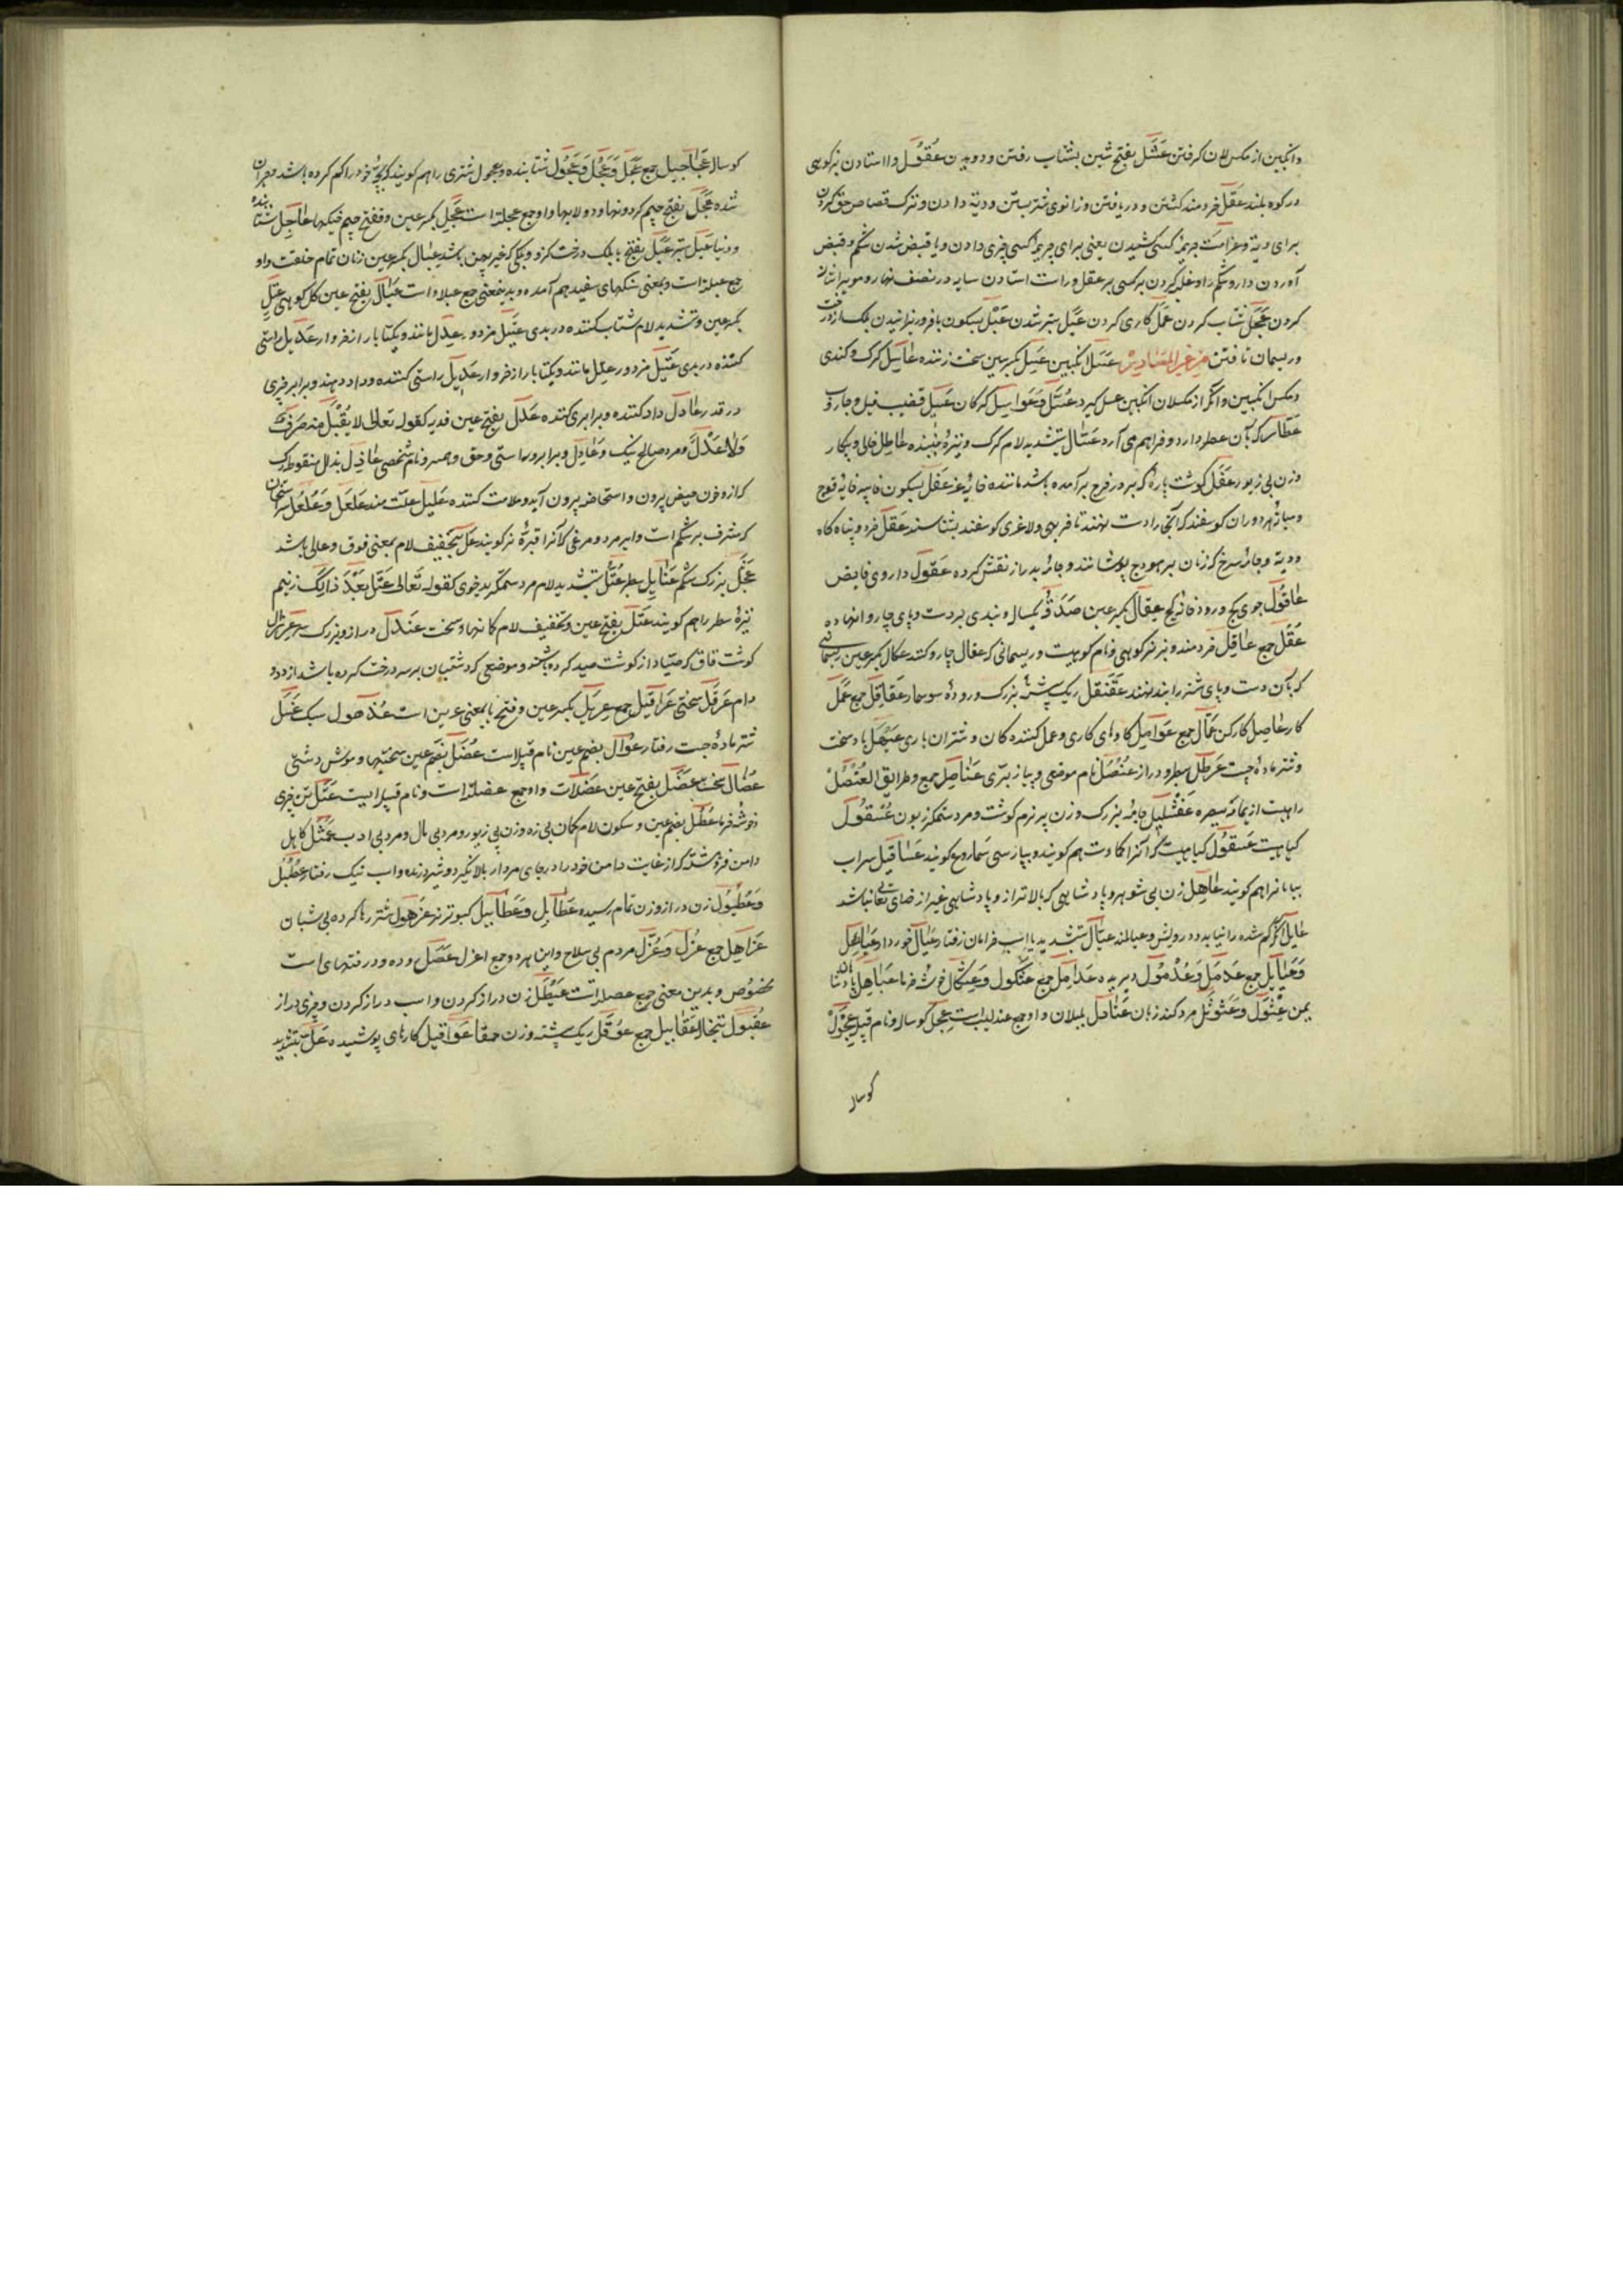 وانکبین از مکس لان کرفتن عَسَل بفتح شین بشتاب رفتن و دویدن عُقوُل وا استادن بز کوهی
در کوه بلند عَقل خردمند کشتن و دریافتن و زانوی شتر بستن و دیة دادن و ترک قصاص حق کردن
برای دیة و غرامت جریمه کسی کشیدن یعنی برای جریمه کسی چیزی دادن و یا قبض شدن شکم و قبض
آوردن دارو شکم را و غلبه کردن بر کسی بر عقل و راست استادن سایه در نصف نهار و موی بر شانه
کردن عَجَل شتاب کردن عَمَل کاری کردن عَبَل ستبر شدن عَبْل بسکون با فرو ریزانیدن برک از درخت
و ریسمان تافتن من غیر المصادر عَسَل انکبین عَسِل بکسر سین سخت زننده عاسِل کرک و کندی
و مکس انکبین و انکه از مکسلان انکبین عسل کیرد عُسَّل وَ عَواسِل کرکان عَسِیل قضیب فیل و جاروب
عَطّار که بآن عطر دارد و فراهم می آرد عَسّال بتشدید لام کرک و نیزهٔ جنبنده عاطِل خالی و بیکار
و زن بی زیور عَفَل کوشت پارهٔ که بر در فرج بر آمده باشد مانند خایه غز عَفْل بسکون فا پیه خایهٔ قوچ
و میانهٔ هر دو ران کوسفند که آنجا را دست نهند تا فربهی و لاغری کوسفند بشناسند عَقل خرد و پناه کاه
و دیة و جامهٔ سرخ که زنان بر هودج پوشانند و جامه بدراز نقش کرده عَقول داروی قابض
عاقُول جوی کج و رودخانه کج عِقال بکسر عین صَدَقَهٔ یکسال و بندی بر دست و پای چاروا نهاده
عُقَّل جمع عاقِل خردمند و بز نر کوهی و نام کوهیست و ریسمانی که عقال چاروا کنند عکال بکسر عین ریسمانی
که بآن دست و پای شتر را بندند عَقَنقَل ریک پشتهٔ بزرک و رودهٔ سوسمار عَقاقِل جمع عَمَل
کار عامِل کارکن عُمّال جمع عَوامِل کاوهای کاری و عمل کننده کان و شتران باری عَیْهَل باد سخت
و شتر ماده جست عَرطَل سطبر و دراز عُنصُل نام موضعی و پیاز بری عَناصِل جمع و طرایق العُنصُل
راهیست از یمامه ببصره عَفْشَلِیل جامهٔ بزرک و زن پیر نرم کوشت و مرد ستمکر زبون عُسقوُل
کیاهیست عَسقوُل کیاهیست که آنرا کماة هم کویند و بپارسی سماروغ کویند عَساقیل سراب
بیابانرا هم کویند عاهِل زن بی شوهر و پادشاهی که بالاتر از و پادشاهی غیر از خدای تعالی نباشد
عایل آنکه کم شده را نیابد و درویش و عیالمند عیّال بتشدید یا اسپ خرامان رفتار عِیال خوردار عَیاهِل
وَ عَیایِل جمع عَدمَل وَ عُدْمُول دیرینه عَدامِل جمع عُثکول وَ عِثکال خوشه خرما عَباهِل پادشاهان
یمن عِثْوَل وَ عَثَوثَل مرد کند زبان عَنادِل بلبلان و او جمع عندلیب است عِجل کوساله و نام قبیله عِجَّوْل
کوساله
کوساله عَجاجیل جمع عَجِل وَ عَجُل وَ عَجُول شتابنده و عجول شتری را هم کویند که بچهٔ خود را کم کرده باشد و حیران
شده عَجَل بفتح جیم کردونها و دولابها و او جمع عجله است عِجَل بکسر عین و فتح جیم مشکها عاجِل شتابنده
و دنیا عَبْل ستبر عَبَل بفتح با برک درخت کز و برکی که خیر پهن باشد عِبال بکسر عین زنان تمام خلقت و او
جمع عبله است و بمعنی سنکهای سفید هم آمده و بدینمعنی جمع عبلاء است عَبال بفتح عین کل کوهی عِتِل
بکسر عین و تشدید لام شتاب کننده در بدی عَتِیل مزدور عِدل مانند و یکتا بار از خروار عَدیل راستی
کننده در بدی عَتِیل مزدور عِدل مانند و یکتا بار از خروار عَدیل راستی کننده و داد دهنده و برابر چیزی
در قدر عادِل داد کننده و برابری کننده عَدل بفتح عین فدیه کقوله تعالی لا یُقْبَل منه صَرفٌ
وَلا عَدْلٌ و مرد صالح نیک و عادل و برابر و راستی و حق و همسر و نام شخصی عاذِل بذال منقوطه رک
که از و خون حیض بیرون و استحاضه بیرون آید و ملامت کننده عَلیل علت مند عَلعَل وَ عُلعُل سر استخوان
که مشرف بر شکم است و ایر مرد و مرغی که آنرا قبرهٔ نر کویند عَل بتخفیف لام بمعنی فوق و عالی باشد
عَثجَل بزرک شکم عُنابِل سطبر عُتُلّ بتشدید لام مرد ستمکر بدخوی کقوله تَعالی عُتُلّ بَعْدَ ذالِکَ زَنِیم
نیزهٔ سطبر را هم کویند عَتَل بفتح عین و تخفیف لام کمانها و سخت عَندَل دراز و بزرک سر عِرزال
کوشت قاق که صیّاد از کوشت صید کرده باشد و موضعی که دشتبان بر سر درخت کرده باشد از دد و
دام عَرقَل سختی عَراقیل جمع عِریَل بکسر عین و فتح یا بمعنی عرین است عُذحول سبک عَنسَل
شتر مادهٔ جست رفتار عُوال بضم عین نام قبیله است عُضَل بضم عین سختیها و موش دشتی
عُضال سخت عَضَل بفتح عین عَضَلات و او جمع عضله است و نام قبیله ایست عَطَل تن چیزی
خوشه خرما عُطْل بضم عین و سکون لام کمان بی زه و زن بی زیور و مرد بی مال و مرد بی ادب عَمَیثَل کاهل
دامن فروشته که از غایت دامن خود را در جای مردار بالا نکیرد و شیر درنده و اسب نیک رفتار عُطْبُل
وَ عُطْبُول زن دراز و زن تمام رسیده عَطابِل وَ عَطابیل کبوتر نر عَزهول شتر رها کرده بی شبان
عَزاهِل جمع عُزل وَ عُزَّل مردم بی سلاح و این هر دو جمع اعزل عَصَل روده و درختهای است
مخصوص و بدین معنی جمع عصله است عَیْطَل زن دراز کردن و اسب دراز کردن و چیزی دراز
عُقبُول تبخاله عَقابیل جمع عَوْکَل ریک پشته و زن حمقا عَواقیل کارهای پوشیده عَلّ بتشدید